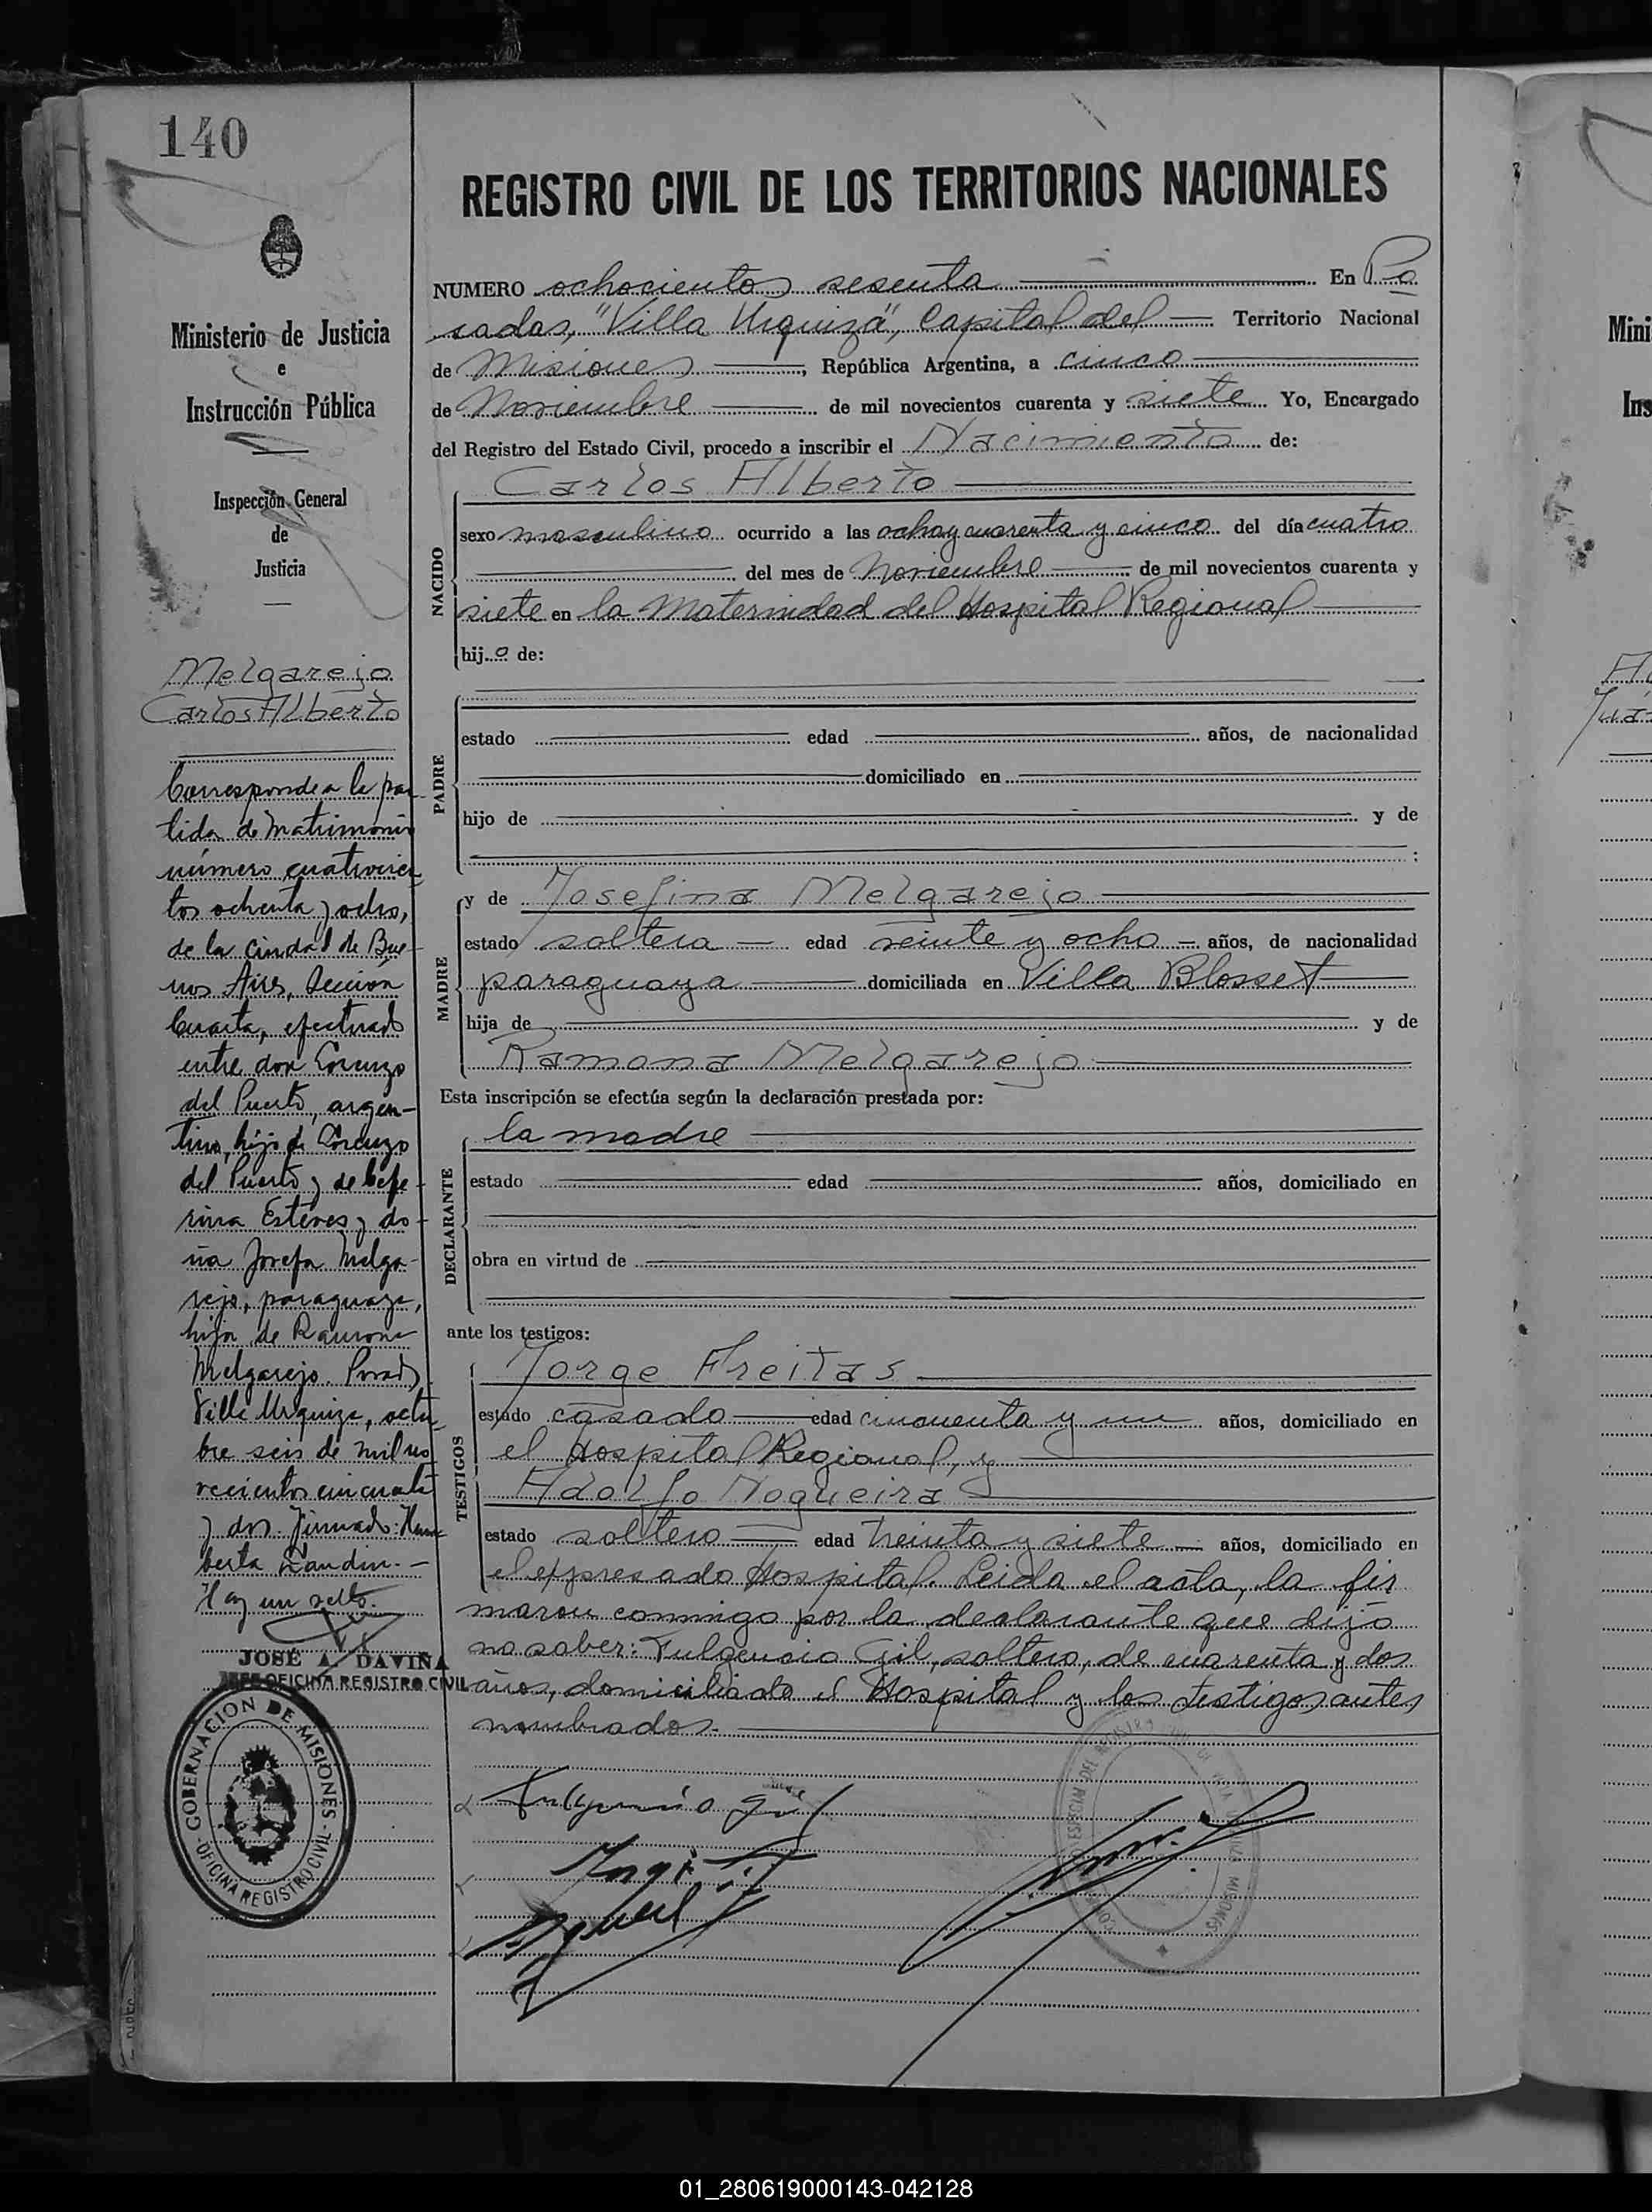 140
REGISTRO CIVIL DE LOS TERRITORIOS NACIONALES
Ministerio de Justicia
e
Instrucción Pública
Inspección General
de
Justicia
Melgarejo
Carlos Alberto
Corresponde a la par
tida de Matrimonio
número cuatrocien
tos ochenta y ocho,
de la Ciudad de Bue-
nos Aires, Sección
Cuarta, efectuado
entre don Lorenzo
del Puerto, argen-
tino, hijo de Lorenzo
del Puerto y de Cefe-
rina Esteves y do-
ña Josefa Melga-
rejo, paraguaya,
hija de Ramona
Melgarejo. Posadas
Villa Urquiza, octu-
bre seis de mil no
vecientos cincuenta
y dos. Firmado:
Landin.-
Hay un sello.
JOSÉ A. DAVIÑA
JEFE OFICINA REGISTRO CIVIL
GOBERNACION DE MISIONES - OFICINA REGISTRO CIVIL -
NUMERO ochocientos sesenta En Po
sadas, "Villa Urquiza", Capital del Territorio Nacional
de Misiones, República Argentina, a cinco
de Noviembre de mil novecientos cuarenta y siete Yo, Encargado
del Registro del Estado Civil, procedo a inscribir el Nacimiento de:
NACIDO
Carlos Alberto
sexo masculino ocurrido a las ocho y cuarenta y cinco del día cuatro
del mes de Noviembre de mil novecientos cuarenta y
siete en la Maternidad del Hospital Regional
hijo de:
PADRE
estado edad años, de nacionalidad
domiciliado en
hijo de y de
:
MADRE
y de Josefina Melgarejo
estado soltera edad veinte y ocho años, de nacionalidad
paraguaya domiciliada en Villa Blosset
hija de y de
Ramona Melgarejo
Esta inscripción se efectúa según la declaración prestada por:
DECLARANTE
la madre
estado edad años, domiciliado en
obra en virtud de
ante los testigos:
TESTIGOS
Jorge Freitas
estado casado edad cincuenta y un años, domiciliado en
el Hospital Regional, y
Adolfo Nogueira
estado soltero edad treinta y siete años, domiciliado en
el expresado Hospital. Leida el acta, la fir
maron conmigo por la declarante que dijo
no saber: Fulgencio Gil, soltero, de cuarenta y dos
años, domiciliado el Hospital y los testigos antes
nombrados.-
Fulgencio Gil
01_280619000143-042128